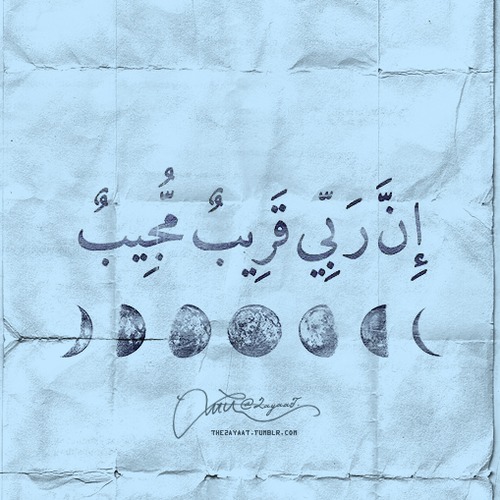 إِنَّ رَبِّي قَرِيبٌ مُّجِيبٌ
@2ayaat
THE2AYAAT.TUMBLR.COM